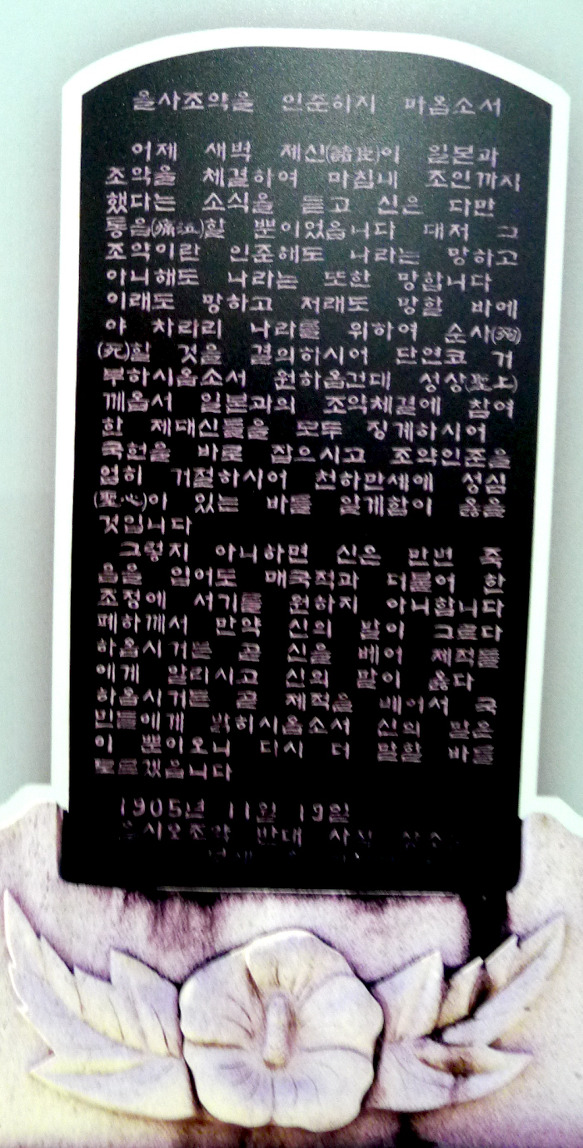 을사조약을 인준하지 마옵소서
어제 새벽 제신(諸臣)이 일본과
조약을 체결하여 마침내 조인까지
했다는 소식을 듣고 신은 다만
통읍(痛泣)할 뿐이었읍니다 대저 그
조약이란 인준해도 나라는 망하고
아니해도 나라는 또한 망합니다
이래도 망하고 저래도 망할 바에
야 차라리 나라를 위하여 순사(殉
(死)할 것을 결의하시어 단연코 거
부하시옵소서 원하옵건대 성상(聖上)
께옵서 일본과의 조약체결에 참여
한 제대신들을 모두 징계하시어
국헌을 바로 잡으시고 조약인준을
엄히 거절하시어 천하만세에 성심
(聖心)이 있는 바를 알게함이 옳을
것입니다
그렇지 아니하면 신은 만번 죽
음을 입어도 매국적과 더불어 한
조정에 서기를 원하지 아니합니다
폐하께서 만약 신의 말이 그르다
하옵시거든 곧 신을 베어 제적들
에게 알리시고 신의 말이 옳다
하옵시거든 곧 제적을 베어서 국
민들에게 밝히시옵소서 신의 말은
이 뿐이오니 다시 더 말할 바를
모르겠읍니다
1905년 11월 19일
조약 반대 사직 상소